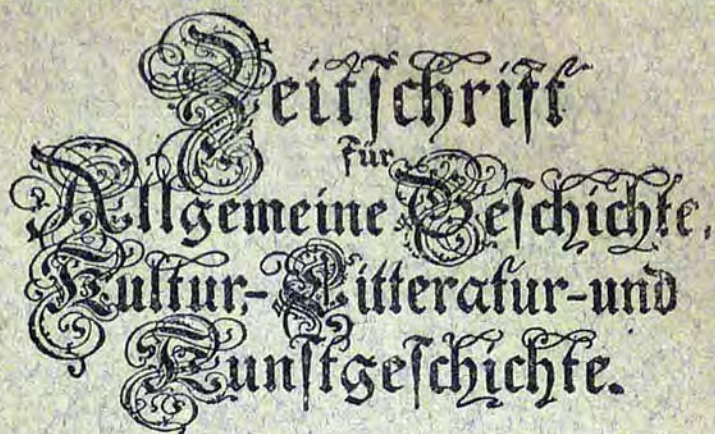 Zeitſchrift
für
Allgemeine Geſchichte,
Kultur-, Litteratur- und
Kunſtgeſchichte.